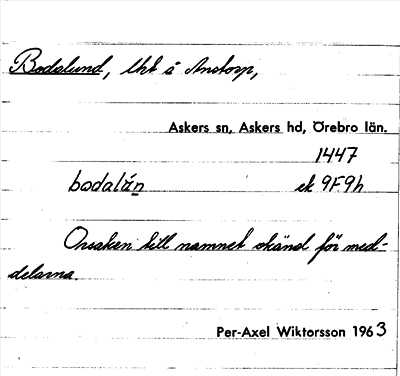 Bodalund, lht å Anstorp,
Askers sn, Askers hd, Örebro län.
1447
bodalún ek 9F9h
Orsaken till namnet okänd för med-
delarna.
Per-Axel Wiktorsson 1963